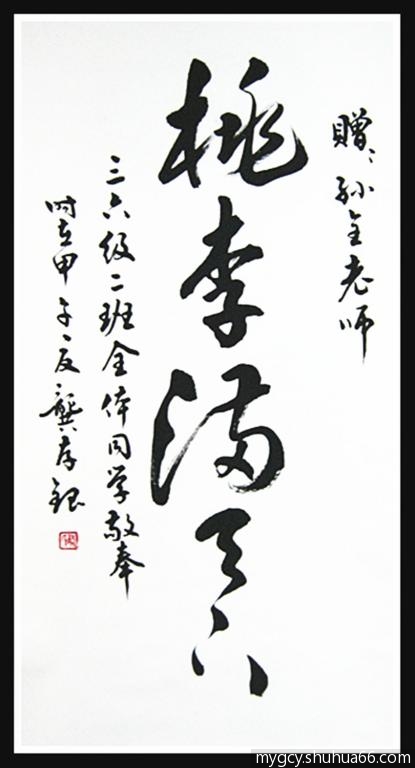 赠：孙全老师
桃李满天下
三六级二班全体同学敬奉
时在甲午夏龚存银
mygcy.shuhua66.com